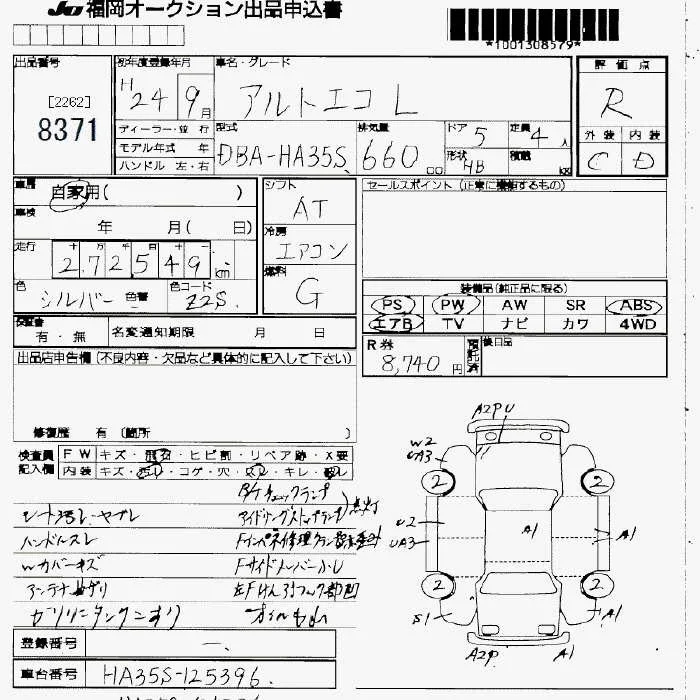 JU 福岡オークション出品申込書
*1001308579*
出品番号
[2262]
8371
初年度登録年月
H 24 9月
車名・グレード
アルトエコ L
評価点
R
外装 内装
C D
ディーラー・並行
モデル年式 年
ハンドル 左・右
型式
DBA-HA35S
排気量
660 cc
ドア 5
形状 HB
定員 4人
積載 kg
車歴
自家用( )
車検
年 月( 日)
走行
十 万 千 百 十 一
2 7 2 5 4 9 km
色
シルバー 色替
色コード
Z2S
シフト
AT
冷房
エアコン
燃料
G
セールスポイント (正常に機能するもの)
装備品(純正品に限る)
PS PW AW SR ABS
エアB TV ナビ カワ 4WD
保証書
有・無
名変通知期限 月 日
R券
8,740円
預託済
後日品
出品店申告欄(不良内容・欠品など具体的に記入して下さい)
修復歴 有 〔箇所 〕
検査員記入欄
FW キズ・飛石・ヒビ割・リペア跡・X要
内装 キズ・汚レ・コゲ・穴・スレ・キレ・破レ
シート汚レ・ヤブレ
ハンドルスレ
Wカバーキズ
アンテナ
ガソリンタンク
アイドリングストップランプ 点灯
登録番号
一.
車台番号
HA35S-125396.
A2PU
W2
UA3
2 2
U2
UA3
A1
A1
2 2
S1
A1
A2P
A1